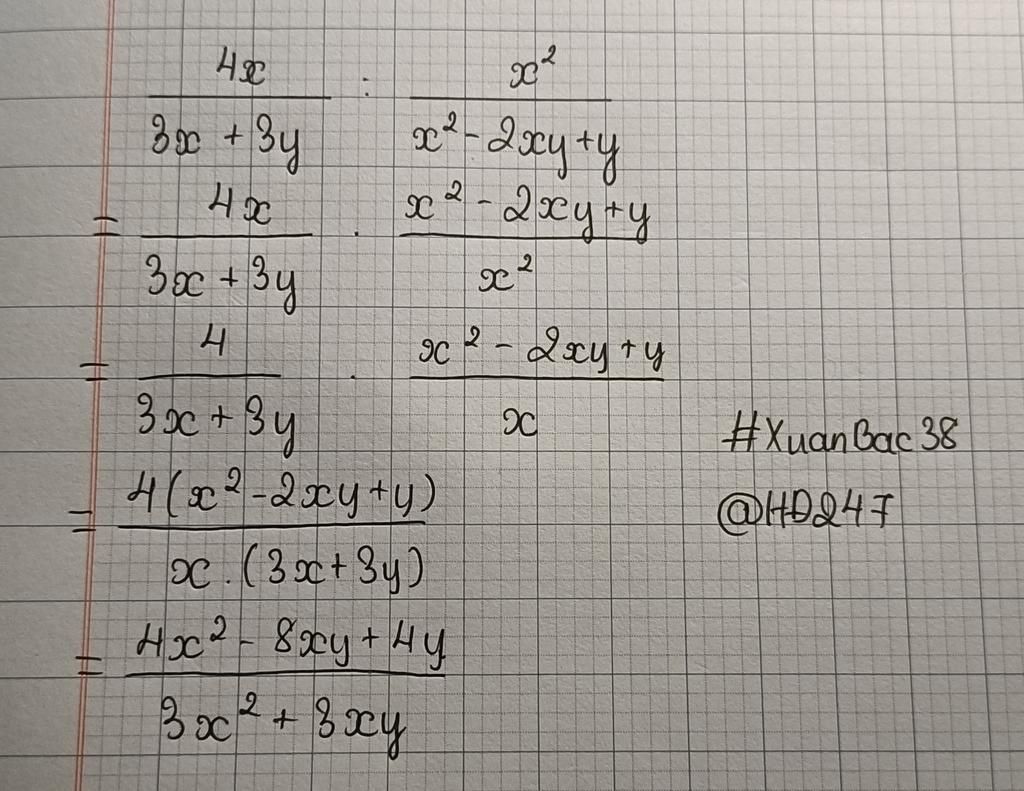 4x / (3x + 3y) : x² / (x² - 2xy + y)
= 4x / (3x + 3y) . (x² - 2xy + y) / x²
= 4 / (3x + 3y) . (x² - 2xy + y) / x
= 4(x² - 2xy + y) / x . (3x + 3y)
= (4x² - 8xy + 4y) / (3x² + 3xy)
#XuanBac38
@HD247